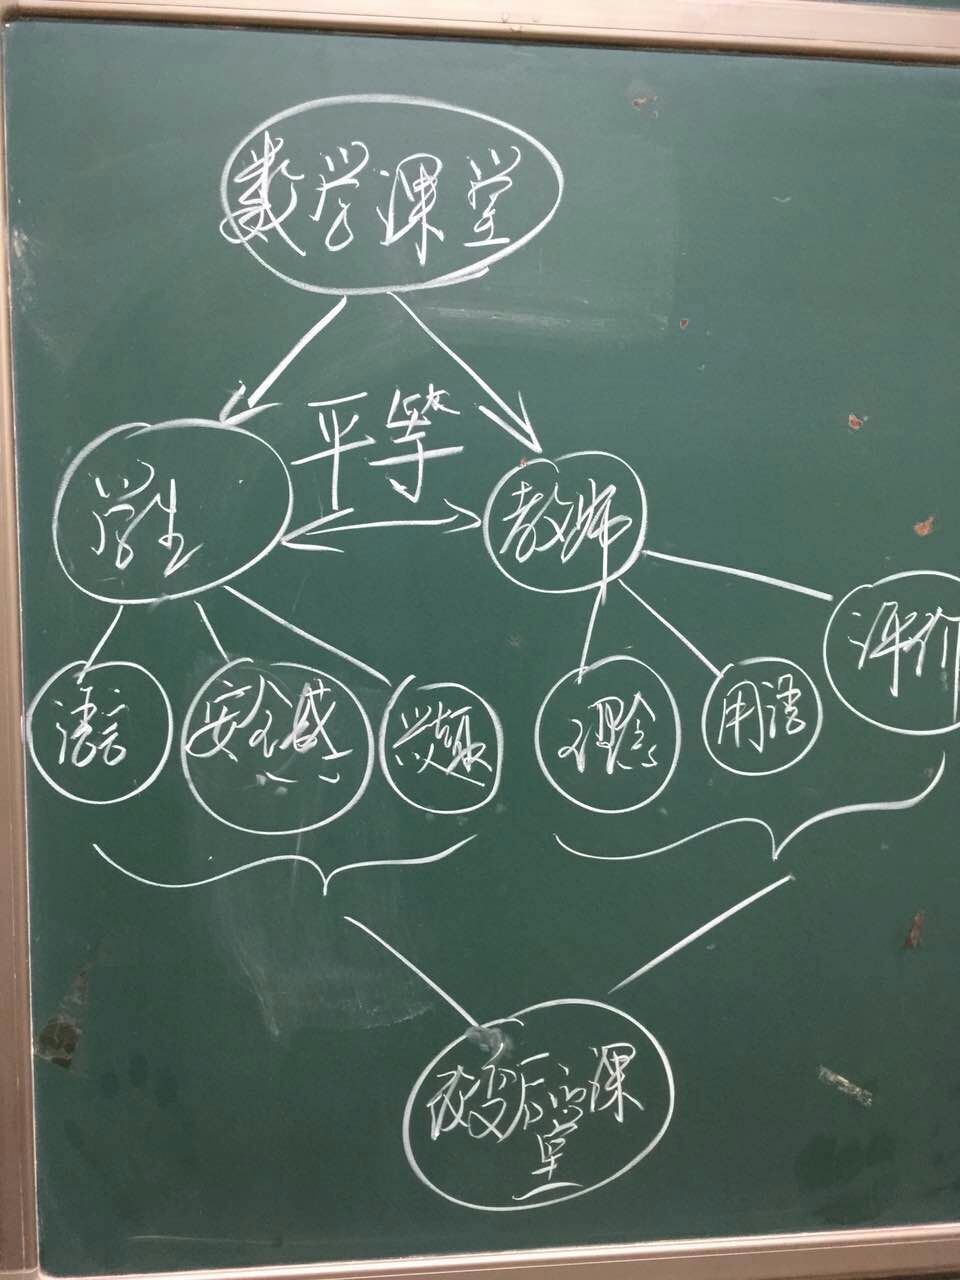 数学课堂
平等
学生
教师
评价
语言
安全感
兴趣
理念
用语
改变后的课
堂